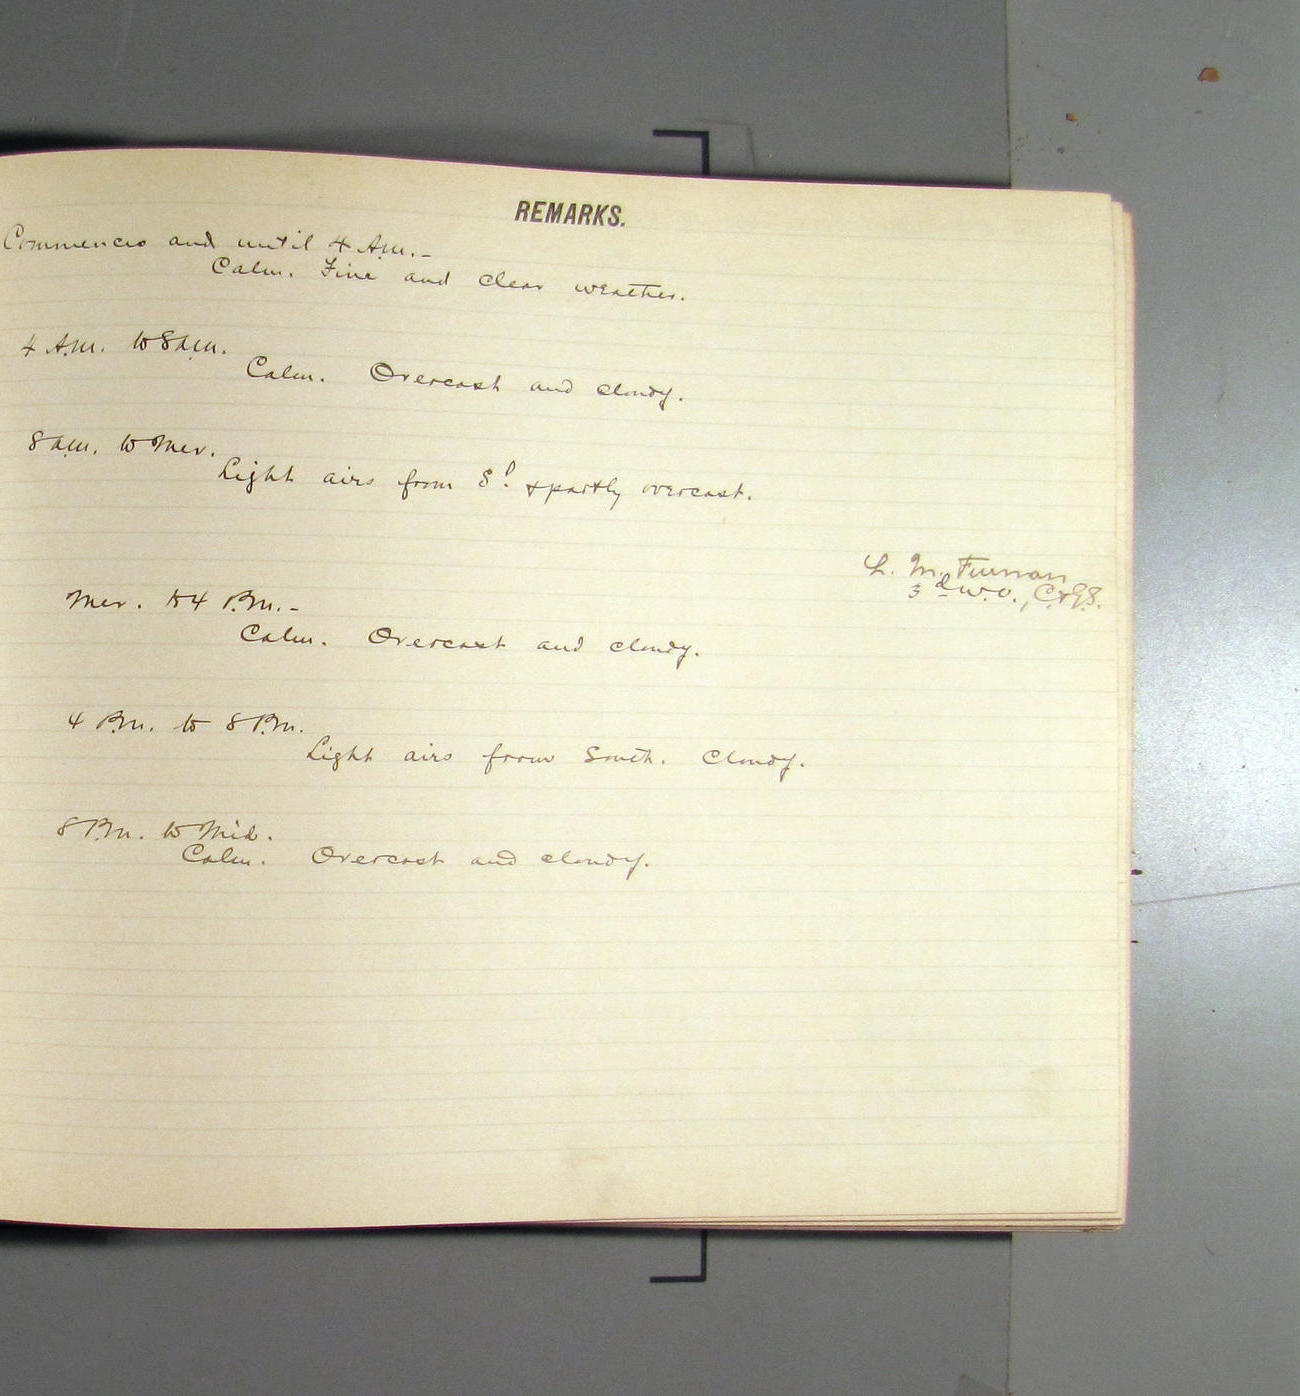 REMARKS.
Commences and until 4 A.m.-
Calm. Fine and clear weather.
4 A.m. to 8 a.m.
Calm. Overcast and cloudy.
8 a.m. to Mer.
Light airs from S'd. & partly overcast.
L. M. Furman
3d W.O., C.&G.S.
Mer. to 4 P.m.-
Calm. Overcast and cloudy.
4 P.m. to 8 P.m.
Light airs from South. Cloudy.
8 P.m. to Mid.
Calm. Overcast and cloudy.